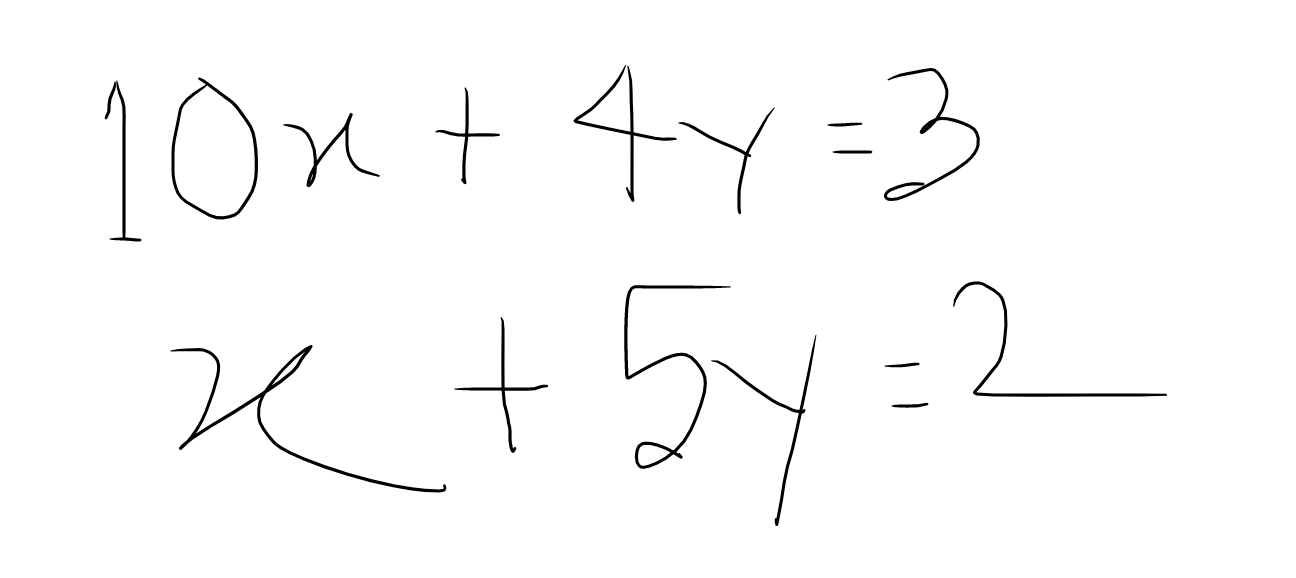 10x + 4y = 3
x + 5y = 2